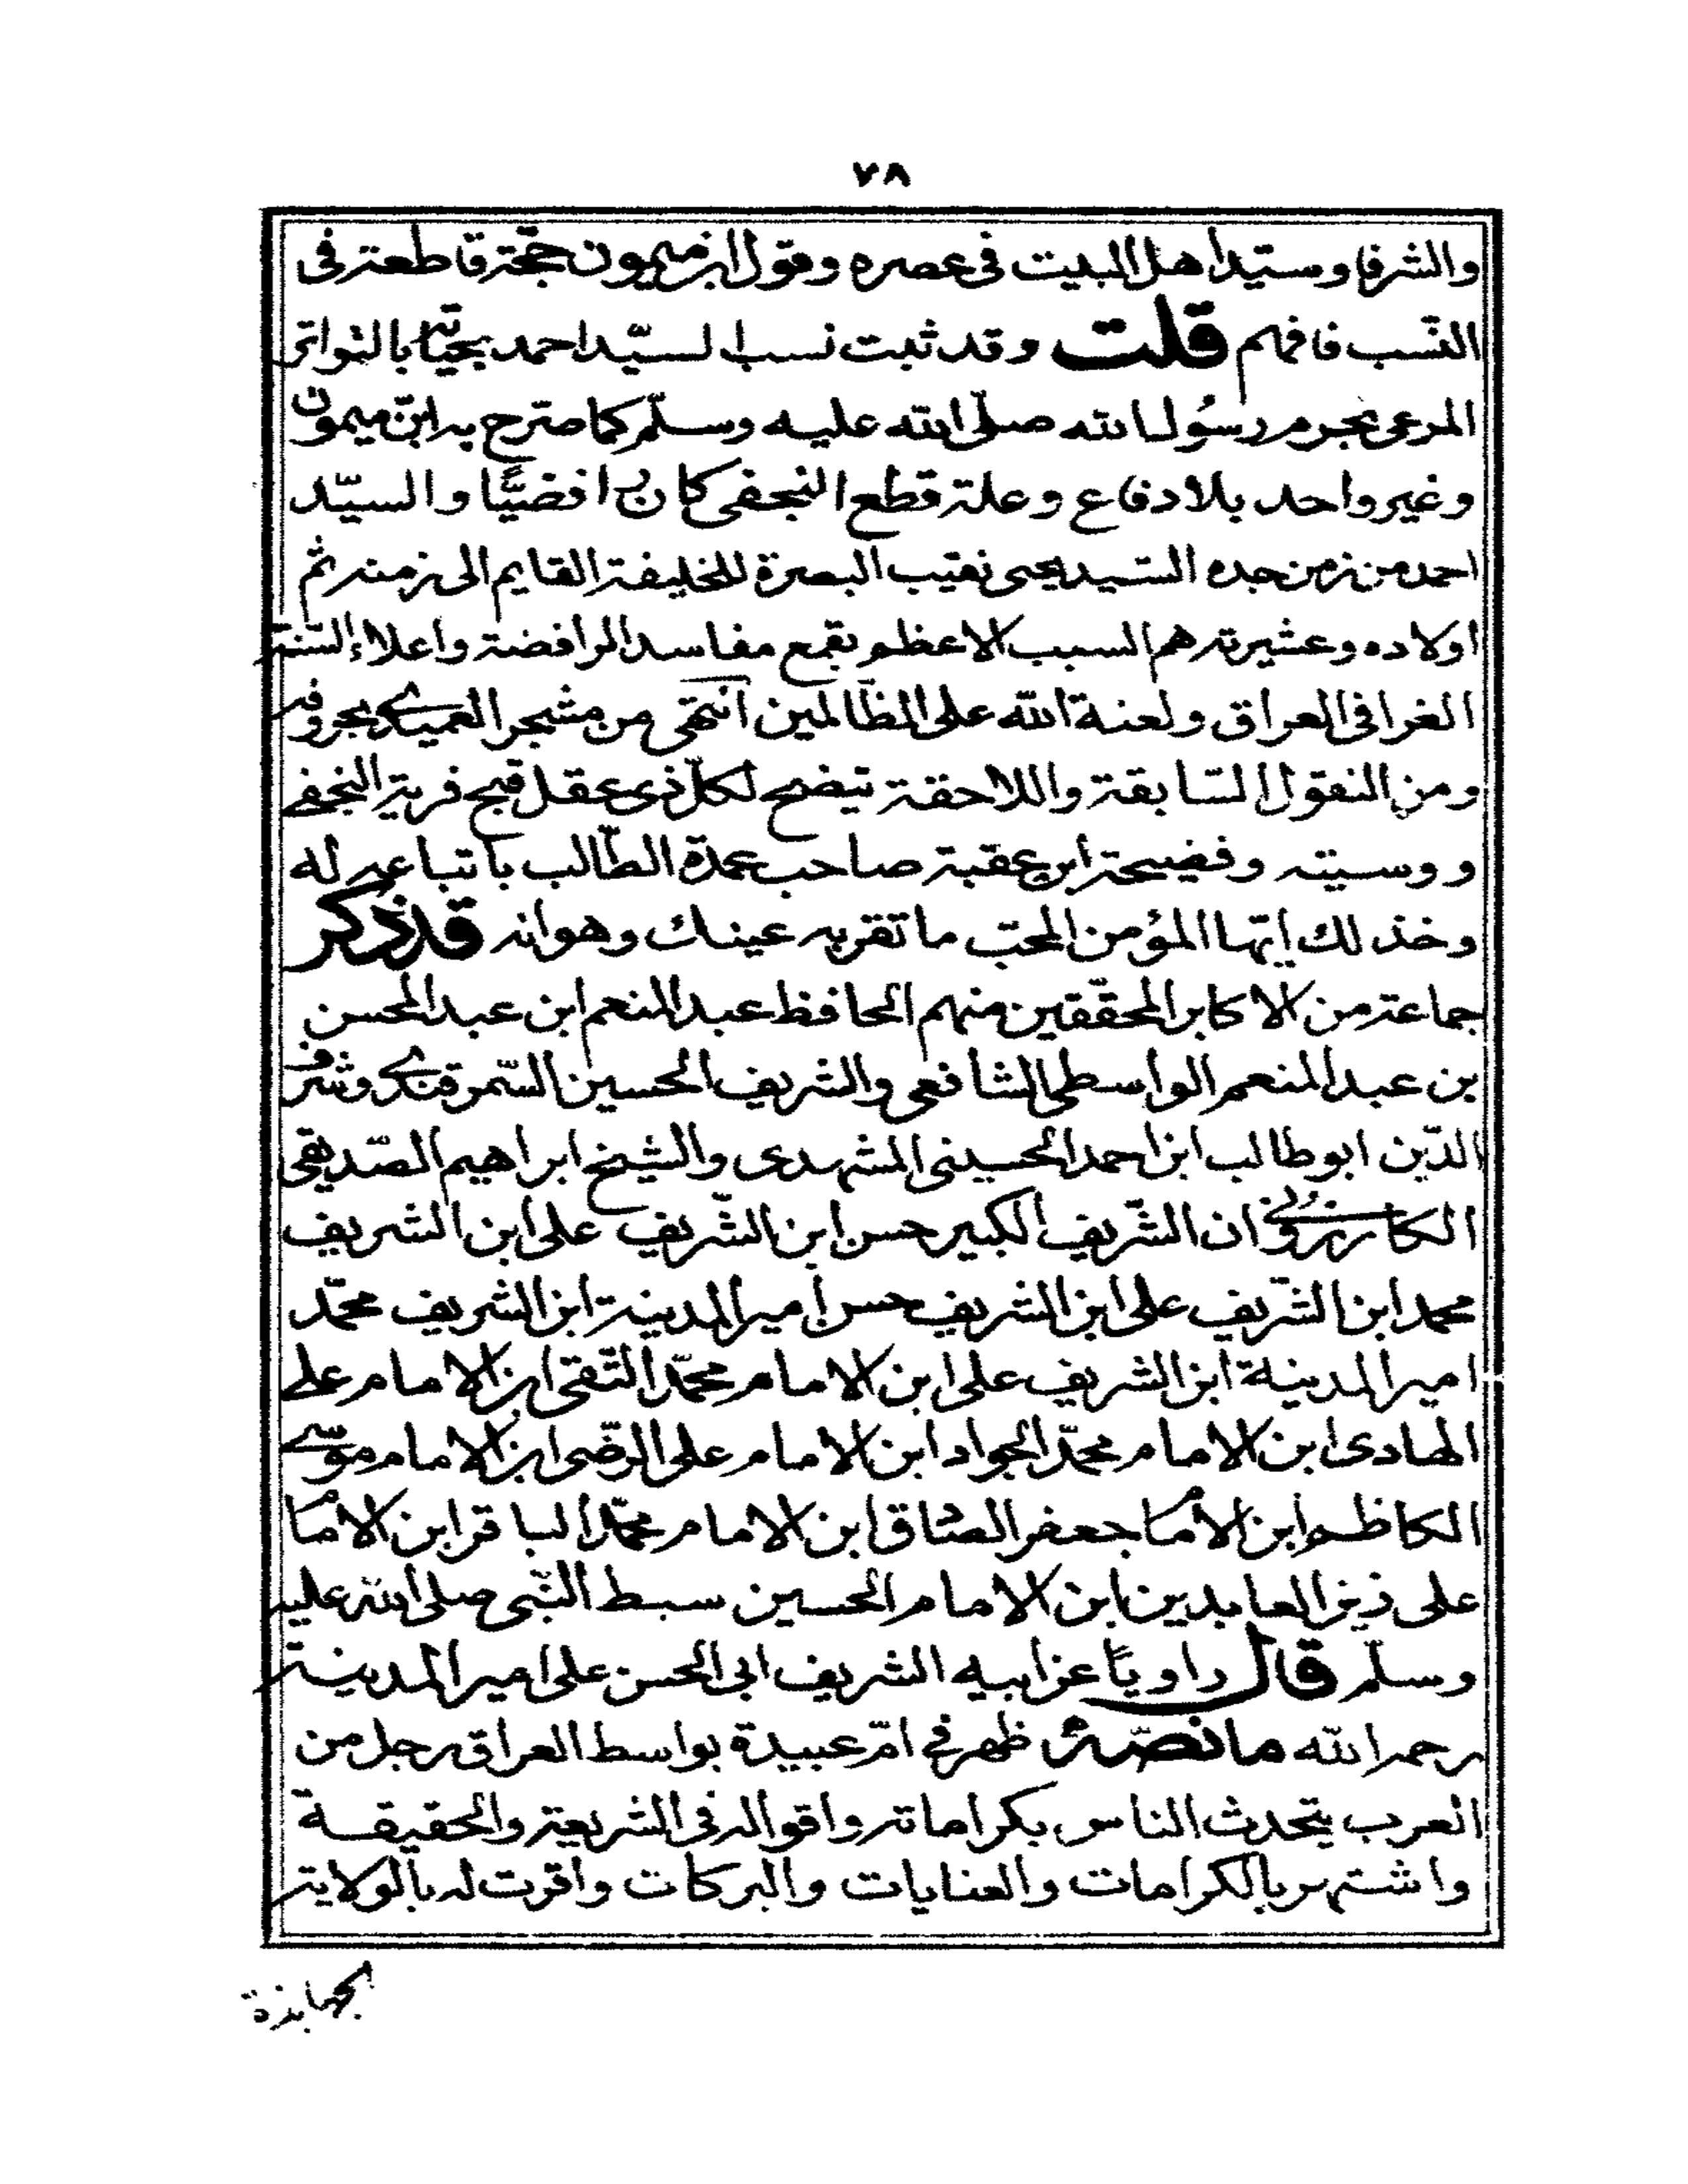 ٧٨
والشرفا وسيّد اهل البيت فى عصره وقول ابن ميمون حجّة قاطعة فى
النسب فافهم قلت وقد ثبت نسب السيّد احمد بالتواتر
المرعى رسُول الله صلّى الله عليه وسلّم كما صرّح به ابن ميمون
وغير واحد بلا دفاع وعلة قطع النجفى كان رافضيًّا والسيّد
احمد من زمن جده السّيد يحيى نقيب البصرة للخليفة القايم الى زمنه ثم
اولاده وعشيرته هم السبب الاعظم بقمع مفاسد الرافضة واعلاء السّنة
الغرا فى العراق ولعنة الله على الظّالمين انتهى من مشجر العميدى بحروفه
ومن النقول السّابقة واللاحقة تيضح لكلّ ذى عقل قبح فرية النجفى
ووسيته وفضيحة ابن عقبة صاحب عمدة الطّالب باتباعه له
وخذ لك ايّها المؤمن المحبّ ما تقر به عينك وهو انه قد ذكر
جماعة من الاكابر المحقّقين منهم الحافظ عبد المنعم ابن عبد المحسن
بن عبد المنعم الواسطى الشافعى والشريف الحسين السّمرقندى وشرف
الدّين ابو طالب ابن احمد الحسينى المشهدى والشيخ ابراهيم الصّديقى
الكازرونى ان الشّريف الكبير حسن ابن الشّريف على ابن الشريف
محمد ابن الشّريف على ابن الشريف حسن امير المدينة ابن الشريف محمّد
امير المدينة ابن الشريف على ابن الامام محمّد التّقى ابن الامام على
الهادى ابن الامام محمّد الجواد ابن الامام على الرضّى ابن الامام موسى
الكاظم ابن الامام جعفر الصّادق ابن الامام محمّد الباقر ابن الامام
على زين العابدين ابن الامام الحسين سبط النّبى صلى الله عليه
وسلّم قال راويًا عن ابيه الشريف ابى الحسن على امير المدينة
رحمه الله ما نصّه ظهر فى امّ عبيدة بواسط العراق رجل من
العرب يتحدث الناس بكراماته واقواله فى الشريعة والحقيقة
واشتهر بالكرامات والعنايات والبركات واقرت له بالولاية
الجهابذة